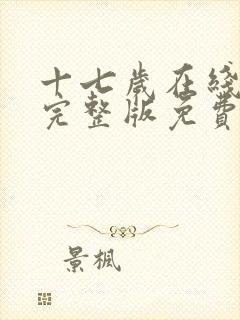 十七歲在綫
完整版免費
景楓